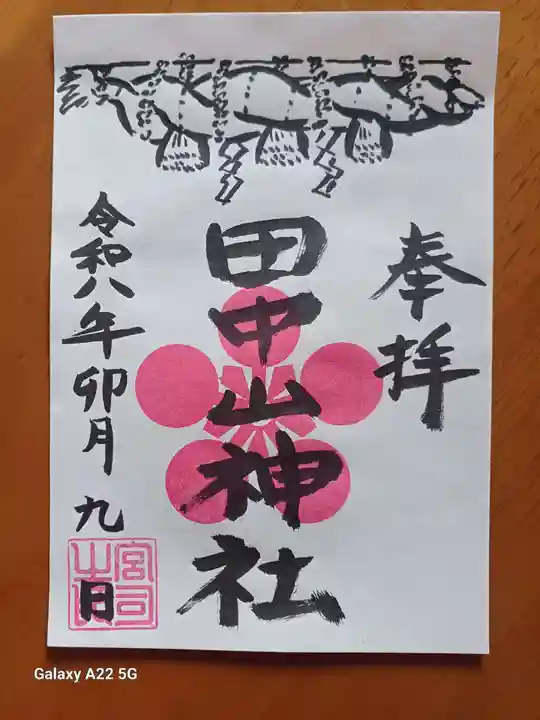 奉拝
田中山神社
令和八年卯月九日
宮司之印
Galaxy A22 5G